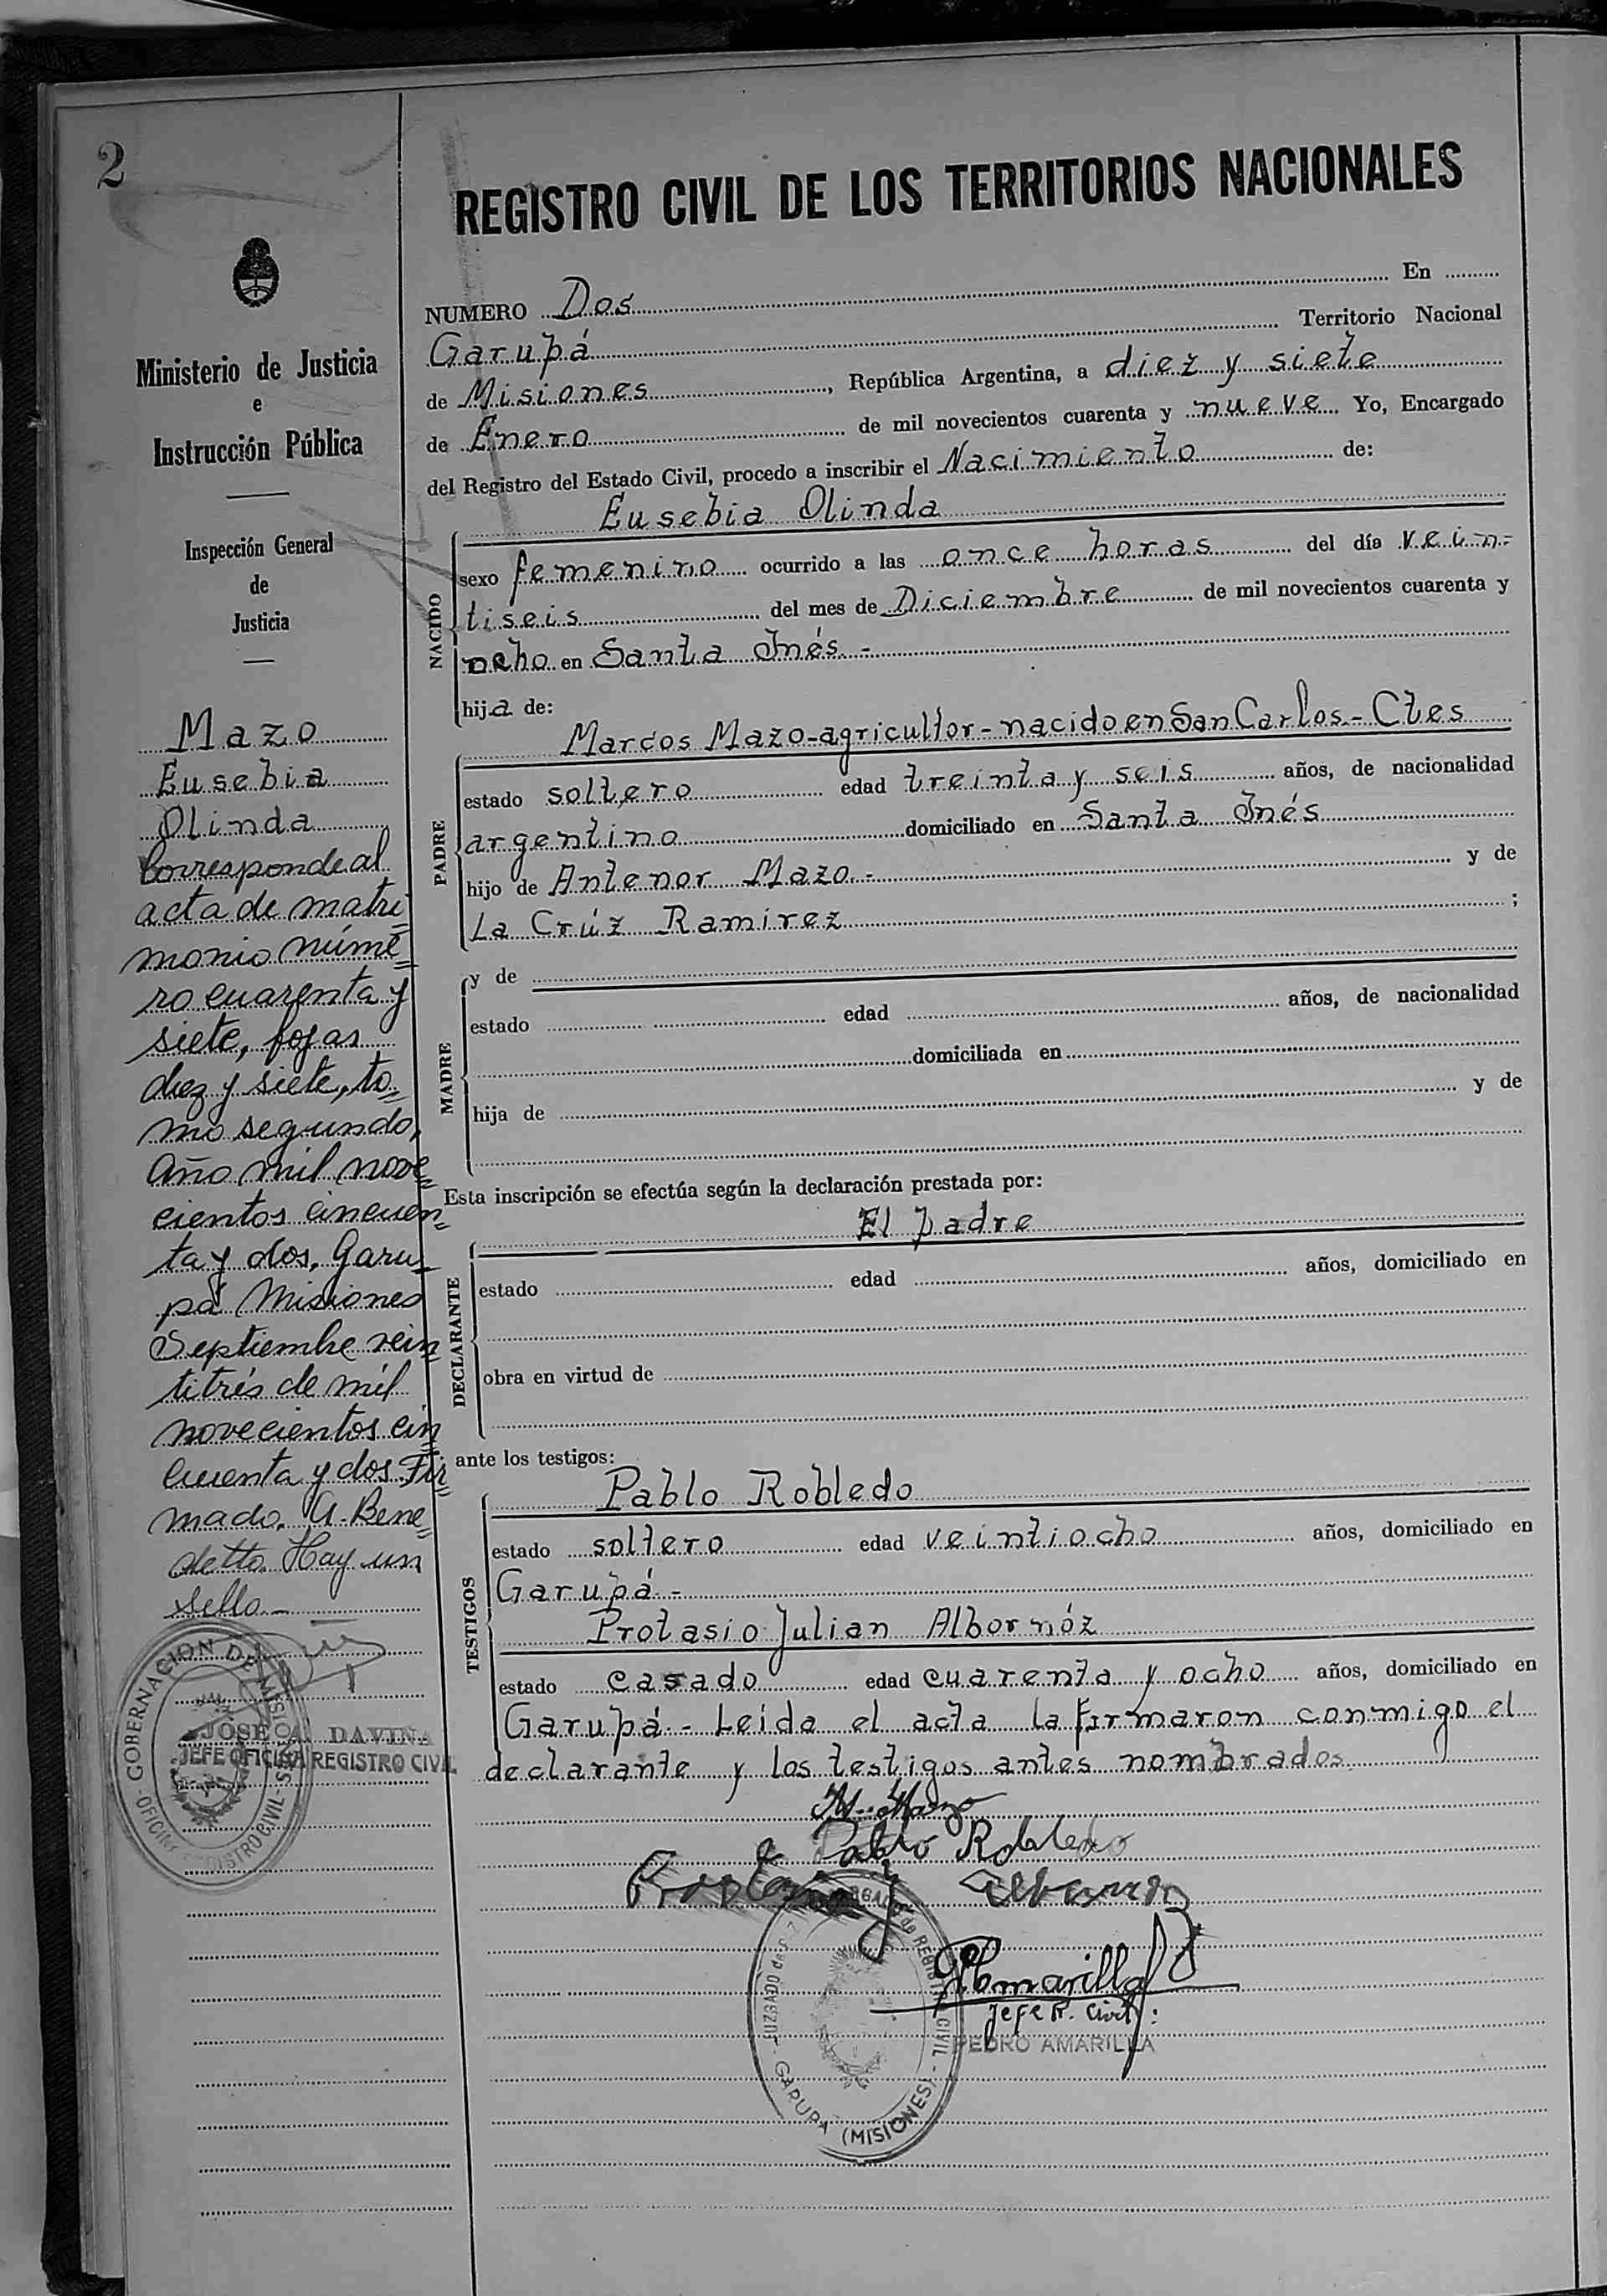 2
REGISTRO CIVIL DE LOS TERRITORIOS NACIONALES
Ministerio de Justicia
e
Instrucción Pública
Inspección General
de
Justicia
Mazo
Eusebia
Olinda
Corresponde al
acta de matri=
monio núme=
ro cuarenta y
siete, fojas
diez y siete, to=
mo segundo,
año mil nove=
cientos cincuen=
ta y dos, Garu=
pá Misiones
Septiembre vein=
titrés de mil
novecientos cin=
cuenta y dos. Fir=
mado. A. Bene=
detto. Hay un
sello.-
GOBERNACION DE MISIONES
OFICINA REGISTRO CIVIL
JOSE A. DAVIÑA
JEFE OFICINA REGISTRO CIVIL
NUMERO Dos En
Garupá Territorio Nacional
de Misiones, República Argentina, a diez y siete
de Enero de mil novecientos cuarenta y nueve. Yo, Encargado
del Registro del Estado Civil, procedo a inscribir el Nacimiento de:
NACIDO
Eusebia Olinda
sexo femenino ocurrido a las once horas del día vein=
tiseis del mes de Diciembre de mil novecientos cuarenta y
ocho en Santa Inés.-
hija de:
PADRE
Marcos Mazo-agricultor-nacido en San Carlos.-Ctes
estado soltero edad treinta y seis años, de nacionalidad
argentino domiciliado en Santa Inés
hijo de Antenor Mazo.- y de
La Crúz Ramirez ;
MADRE
y de
estado edad años, de nacionalidad
domiciliada en
hija de y de
Esta inscripción se efectúa según la declaración prestada por:
El padre
DECLARANTE
estado edad años, domiciliado en
obra en virtud de
ante los testigos:
TESTIGOS
Pablo Robledo
estado soltero edad veintiocho años, domiciliado en
Garupá.-
Protasio Julian Albornóz
estado casado edad cuarenta y ocho años, domiciliado en
Garupá.- Leida el acta la firmaron conmigo el
declarante y los testigos antes nombrados.
M. Mazo
Pablo Robledo
Protasio J Albornoz
P Amarilla
Jefe R. Civil:
PEDRO AMARILLA
REGISTRO CIVIL - GARUPA (MISIONES)